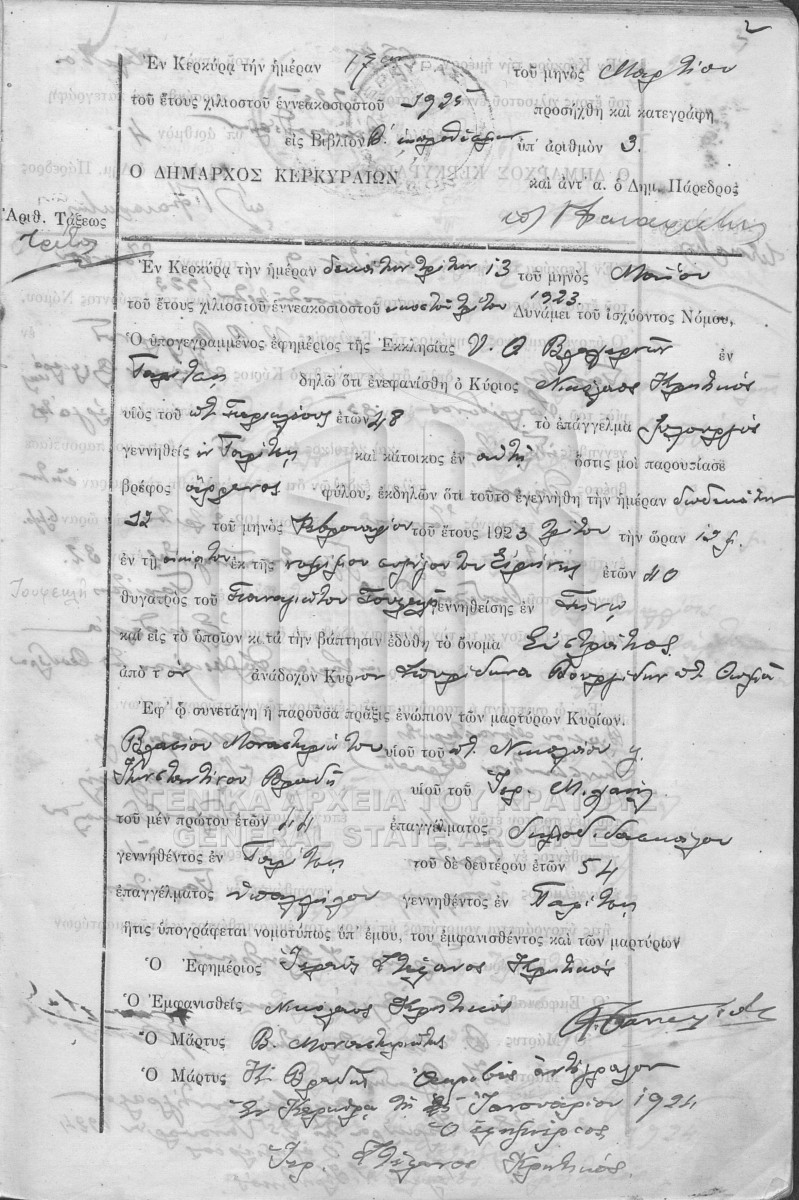 2
Ἐν Κερκύρᾳ τὴν ἡμέραν 17ην τοῦ μηνὸς Μαρτίου
τοῦ ἔτους χιλιοστοῦ ἐννεακοσιοστοῦ 1925 προσήχθη καὶ κατεγράφη
εἰς Βιβλίον Β΄ ὑπ' ἀριθμὸν 3.
Ο ΔΗΜΑΡΧΟΣ ΚΕΡΚΥΡΑΙΩΝ
καὶ ἀντ' α. ὁ Δημ. Πάρεδρος
Ἀριθ. Τάξεως
Τρίτη
Ἐν Κερκύρᾳ τὴν ἡμέραν δεκάτην τρίτην 13 τοῦ μηνὸς Μαΐου
τοῦ ἔτους χιλιοστοῦ ἐννεακοσιοστοῦ εἰκοστοῦ τρίτου 1923 Δυνάμει τοῦ ἰσχύοντος Νόμου,
Ὁ ὑπογεγραμμένος ἐφημέριος τῆς Ἐκκλησίας Υ. Θ. Βλαχερνῶν ἐν
Γαρίτσῃ δηλῶ ὅτι ἐνεφανίσθη ὁ Κύριος Νικόλαος Κρητικός
υἱὸς τοῦ ποτ. Περικλέους ἐτῶν 48 τὸ ἐπάγγελμα ξυλουργός
γεννηθεὶς ἐν Γαρίτσῃ καὶ κάτοικος ἐν αὐτῇ ὅστις μοὶ παρουσίασε
βρέφος ἄρρενος φύλου, ἐκδηλῶν ὅτι τοῦτο ἐγεννήθη τὴν ἡμέραν δωδεκάτην
12 τοῦ μηνὸς Φεβρουαρίου τοῦ ἔτους 1923 τρίτου τὴν ὥραν
ἐν τῇ οἰκίᾳ του ἐκ τῆς νομίμου συζύγου του Εἰρήνης ἐτῶν 40
θυγατρὸς τοῦ Παναγιώτου γεννηθείσης ἐν
καὶ εἰς τὸ ὁποῖον κατὰ τὴν βάπτισιν ἐδόθη τὸ ὄνομα Εὐστράτιος
ἀπὸ τὸν ἀνάδοχον Κύριον Σπυρίδωνα ποτ. Θωμᾶ
Ἐφ' ᾧ συνετάγη ἡ παροῦσα πρᾶξις ἐνώπιον τῶν μαρτύρων Κυρίων.
Βλασίου Μοναστηριώτου υἱοῦ τοῦ ποτ. Νικολάου
Κωνσταντίνου Βραδῆ υἱοῦ τοῦ Ἱερ. Μιχαήλ
ΓΕΝΙΚΑ ΑΡΧΕΙΑ ΤΟΥ ΚΡΑΤΟΥΣ
GENERAL STATE ARCHIVES
τοῦ μὲν πρώτου ἐτῶν 44 ἐπαγγέλματος δημοδιδασκάλου
γεννηθέντος ἐν Γαρίτσῃ τοῦ δὲ δευτέρου ἐτῶν 54
ἐπαγγέλματος ὑπαλλήλου γεννηθέντος ἐν Γαρίτσῃ
ἥτις ὑπογράφεται νομοτύπως ὑπ' ἐμου, τοῦ ἐμφανισθέντος καὶ τῶν μαρτύρων
Ὁ Ἐφημέριος Ἱερεὺς Στέφανος Κρητικός
Ὁ Ἐμφανισθεὶς Νικόλαος Κρητικός
Ὁ Μάρτυς Β. Μοναστηριώτης
Ὁ Μάρτυς Κ. Βραδῆς Ἀκριβὲς ἀντίγραφον
Ἐν Κερκύρᾳ τῇ Ἰανουαρίου 1924
Ὁ ἐφημέριος
Ἱερ. Στέφανος Κρητικός.